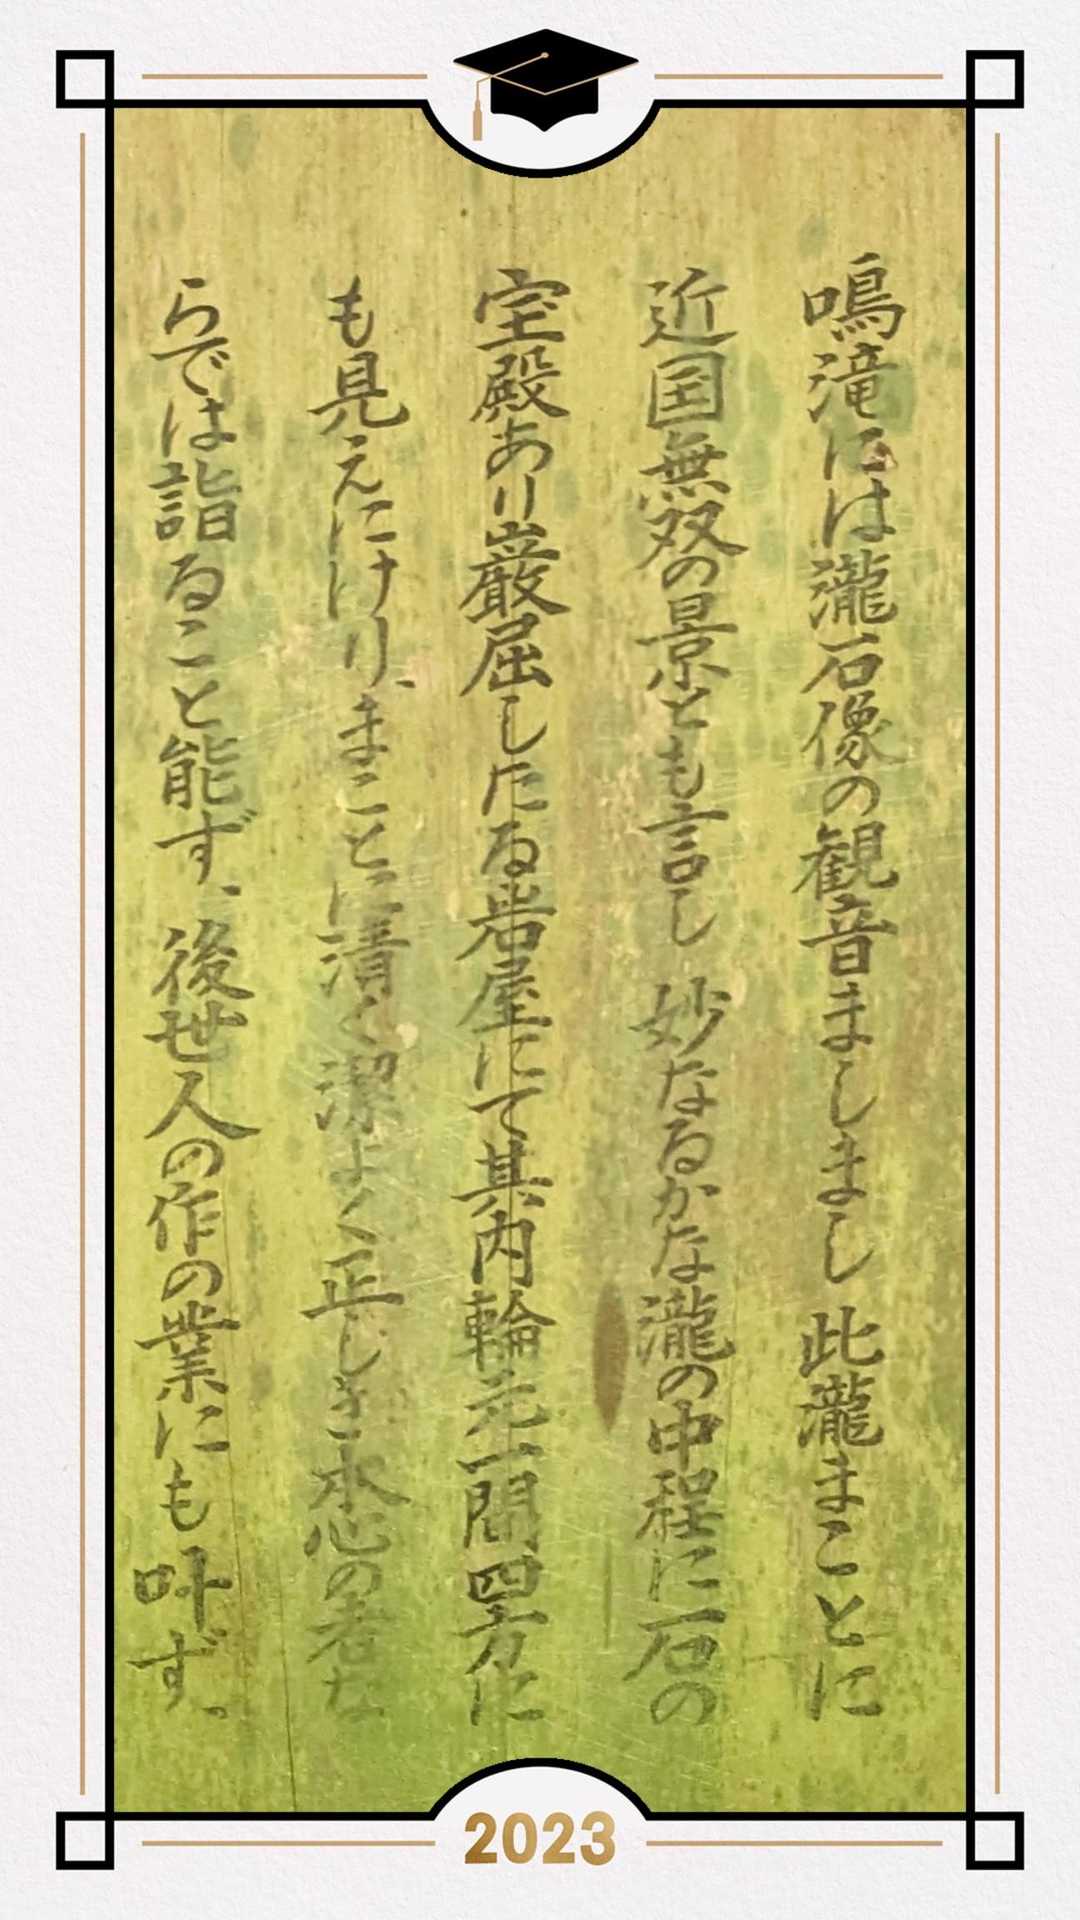 鳴滝には瀧石像の観音ましまし 此瀧まことに
近国無双の景とも言し 妙なるかな瀧の中程に石の
宝殿あり巌屈したる岩屋にて其内輪元一間四方に
も見えにけり、まことに清く潔よく正しき本心の者な
らでは詣ること能ず、後世人の作の業にも叶ず、
2023